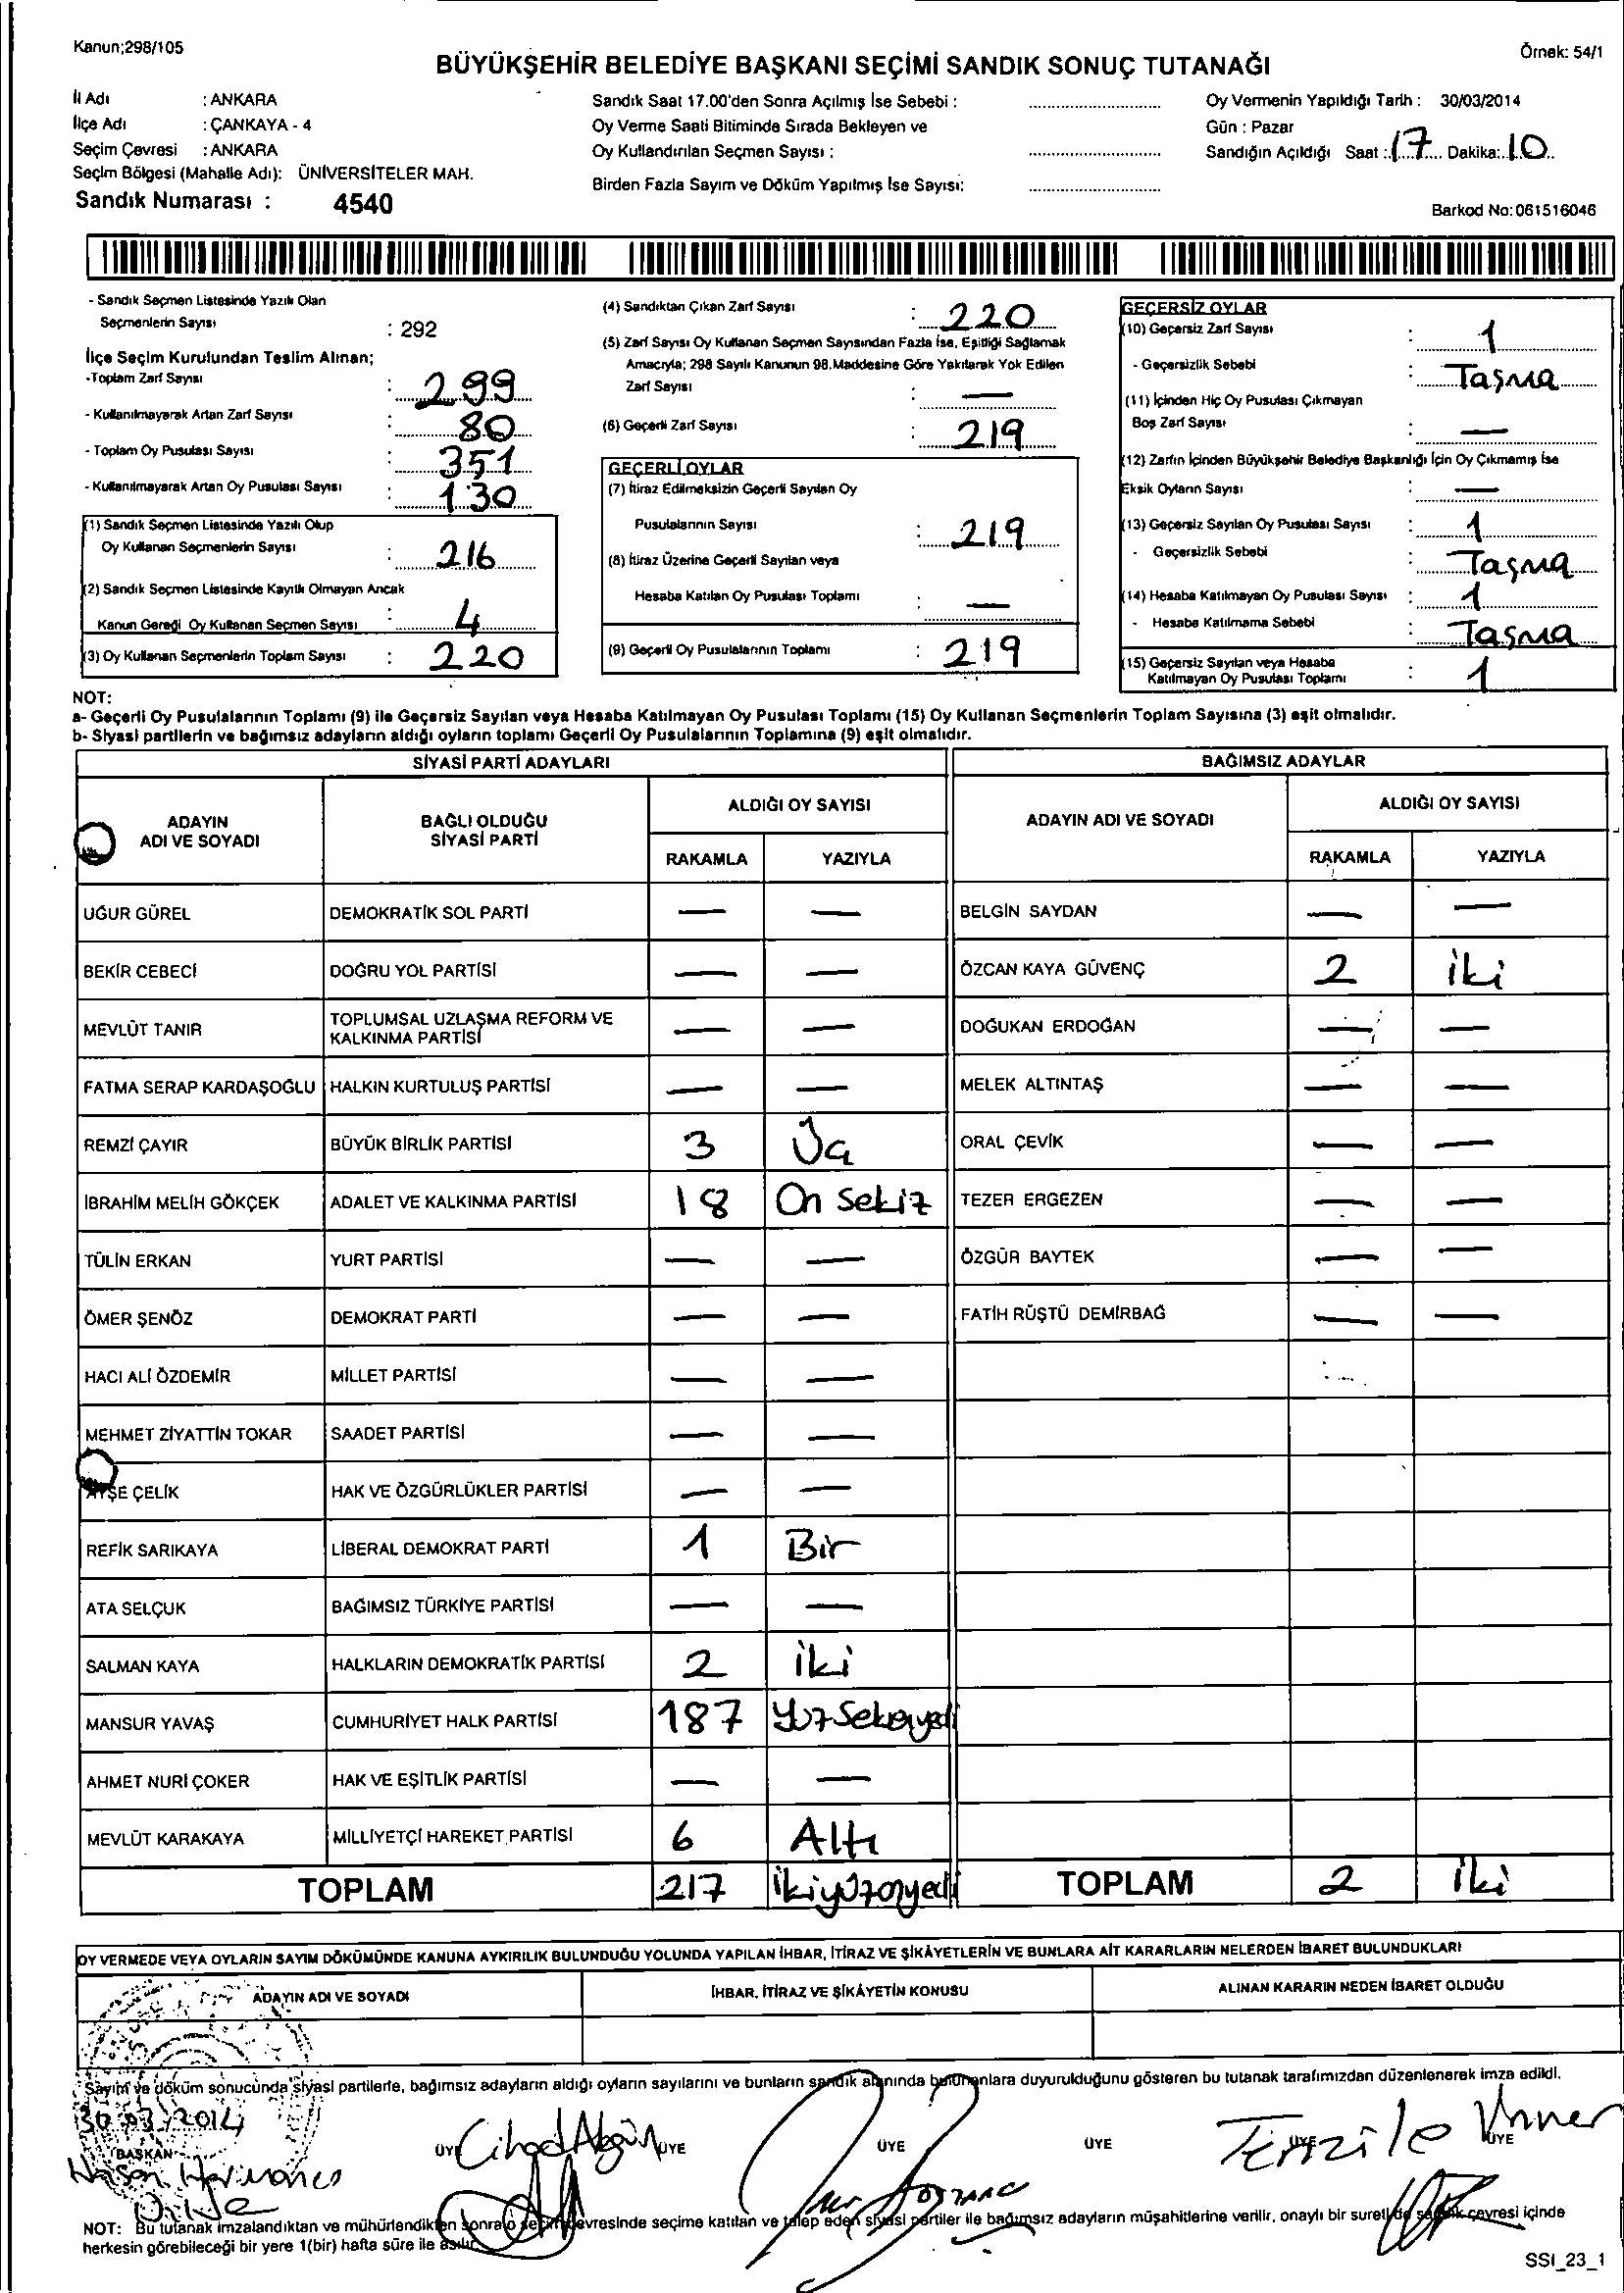 Kanun;298/105
Örnek: 54/1
BÜYÜKŞEHİR BELEDİYE BAŞKANI SEÇİMİ SANDIK SONUÇ TUTANAĞI
İl Adı : ANKARA
İlçe Adı : ÇANKAYA - 4
Seçim Çevresi : ANKARA
Seçim Bölgesi (Mahalle Adı): ÜNİVERSİTELER MAH.
Sandık Numarası : 4540
Sandık Saat 17.00'den Sonra Açılmış İse Sebebi :
Oy Verme Saati Bitiminde Sırada Bekleyen ve
Oy Kullandırılan Seçmen Sayısı :
Birden Fazla Sayım ve Döküm Yapılmış İse Sayısı:
Oy Vermenin Yapıldığı Tarih : 30/03/2014
Gün : Pazar
Sandığın Açıldığı Saat : 17 Dakika: 10
Barkod No: 061516046
- Sandık Seçmen Listesinde Yazılı Olan
Seçmenlerin Sayısı : 292
İlçe Seçim Kurulundan Teslim Alınan;
-Toplam Zarf Sayısı : 299
- Kullanılmayarak Artan Zarf Sayısı : 80
- Toplam Oy Pusulası Sayısı : 351
- Kullanılmayarak Artan Oy Pusulası Sayısı : 130
(1) Sandık Seçmen Listesinde Yazılı Olup
Oy Kullanan Seçmenlerin Sayısı : 216
(2) Sandık Seçmen Listesinde Kayıtlı Olmayan Ancak
Kanun Gereği Oy Kullanan Seçmen Sayısı : 4
(3) Oy Kullanan Seçmenlerin Toplam Sayısı : 220
(4) Sandıktan Çıkan Zarf Sayısı : 220
(5) Zarf Sayısı Oy Kullanan Seçmen Sayısından Fazla İse, Eşitliği Sağlamak
Amacıyla; 298 Sayılı Kanunun 98.Maddesine Göre Yakılarak Yok Edilen
Zarf Sayısı : —
(6) Geçerli Zarf Sayısı : 219
GEÇERLİ OYLAR
(7) İtiraz Edilmeksizin Geçerli Sayılan Oy
Pusulalarının Sayısı : 219
(8) İtiraz Üzerine Geçerli Sayılan veya
Hesaba Katılan Oy Pusulası Toplamı : —
(9) Geçerli Oy Pusulalarının Toplamı : 219
GEÇERSİZ OYLAR
(10) Geçersiz Zarf Sayısı : 1
- Geçersizlik Sebebi : Taşma
(11) İçinden Hiç Oy Pusulası Çıkmayan
Boş Zarf Sayısı : —
(12) Zarfın İçinden Büyükşehir Belediye Başkanlığı İçin Oy Çıkmamış İse
Eksik Oyların Sayısı : —
(13) Geçersiz Sayılan Oy Pusulası Sayısı : 1
- Geçersizlik Sebebi : Taşma
(14) Hesaba Katılmayan Oy Pusulası Sayısı : 1
- Hesaba Katılmama Sebebi : Taşma
(15) Geçersiz Sayılan veya Hesaba
Katılmayan Oy Pusulası Toplamı : 1
NOT:
a- Geçerli Oy Pusulalarının Toplamı (9) ile Geçersiz Sayılan veya Hesaba Katılmayan Oy Pusulası Toplamı (15) Oy Kullanan Seçmenlerin Toplam Sayısına (3) eşit olmalıdır.
b- Siyasi partilerin ve bağımsız adayların aldığı oyların toplamı Geçerli Oy Pusulalarının Toplamına (9) eşit olmalıdır.
SİYASİ PARTİ ADAYLARI BAĞIMSIZ ADAYLAR
ADAYIN ADI VE SOYADI BAĞLI OLDUĞU SİYASİ PARTİ ALDIĞI OY SAYISI ADAYIN ADI VE SOYADI ALDIĞI OY SAYISI
RAKAMLA YAZIYLA RAKAMLA YAZIYLA
UĞUR GÜREL DEMOKRATİK SOL PARTİ — — BELGİN SAYDAN — —
BEKİR CEBECİ DOĞRU YOL PARTİSİ — — ÖZCAN KAYA GÜVENÇ 2 iki
MEVLÜT TANIR TOPLUMSAL UZLAŞMA REFORM VE KALKINMA PARTİSİ — — DOĞUKAN ERDOĞAN — —
FATMA SERAP KARDAŞOĞLU HALKIN KURTULUŞ PARTİSİ — — MELEK ALTINTAŞ — —
REMZİ ÇAYIR BÜYÜK BİRLİK PARTİSİ 3 Üç ORAL ÇEVİK — —
İBRAHİM MELİH GÖKÇEK ADALET VE KALKINMA PARTİSİ 18 On Sekiz TEZER ERGEZEN — —
TÜLİN ERKAN YURT PARTİSİ — — ÖZGÜR BAYTEK — —
ÖMER ŞENÖZ DEMOKRAT PARTİ — — FATİH RÜŞTÜ DEMİRBAĞ — —
HACI ALİ ÖZDEMİR MİLLET PARTİSİ — —
MEHMET ZİYATTİN TOKAR SAADET PARTİSİ — —
AYŞE ÇELİK HAK VE ÖZGÜRLÜKLER PARTİSİ — —
REFİK SARIKAYA LİBERAL DEMOKRAT PARTİ 1 Bir
ATA SELÇUK BAĞIMSIZ TÜRKİYE PARTİSİ — —
SALMAN KAYA HALKLARIN DEMOKRATİK PARTİSİ 2 iki
MANSUR YAVAŞ CUMHURİYET HALK PARTİSİ 187
AHMET NURİ ÇOKER HAK VE EŞİTLİK PARTİSİ — —
MEVLÜT KARAKAYA MİLLİYETÇİ HAREKET PARTİSİ 6 Altı
TOPLAM 217 ikiyüzonyedi TOPLAM 2 iki
OY VERMEDE VEYA OYLARIN SAYIM DÖKÜMÜNDE KANUNA AYKIRILIK BULUNDUĞU YOLUNDA YAPILAN İHBAR, İTİRAZ VE ŞİKÂYETLERİN VE BUNLARA AİT KARARLARIN NELERDEN İBARET BULUNDUKLARI
ADAYIN ADI VE SOYADI İHBAR, İTİRAZ VE ŞİKÂYETİN KONUSU ALINAN KARARIN NEDEN İBARET OLDUĞU
Sayım ve döküm sonucunda siyasi partilerle, bağımsız adayların aldığı oyların sayılarını ve bunların sandık alanında bulunanlara duyurulduğunu gösteren bu tutanak tarafımızdan düzenlenerek imza edildi.
30.03.2014
BAŞKAN ÜYE ÜYE ÜYE ÜYE ÜYE ÜYE
Cihad Akgün
NOT: Bu tutanak imzalandıktan ve mühürlendikten sonra o seçim çevresinde seçime katılan ve talep eden siyasi partiler ile bağımsız adayların müşahitlerine verilir, onaylı bir sureti de sandık çevresi içinde
herkesin görebileceği bir yere 1(bir) hafta süre ile asılır.
SSI_23_1